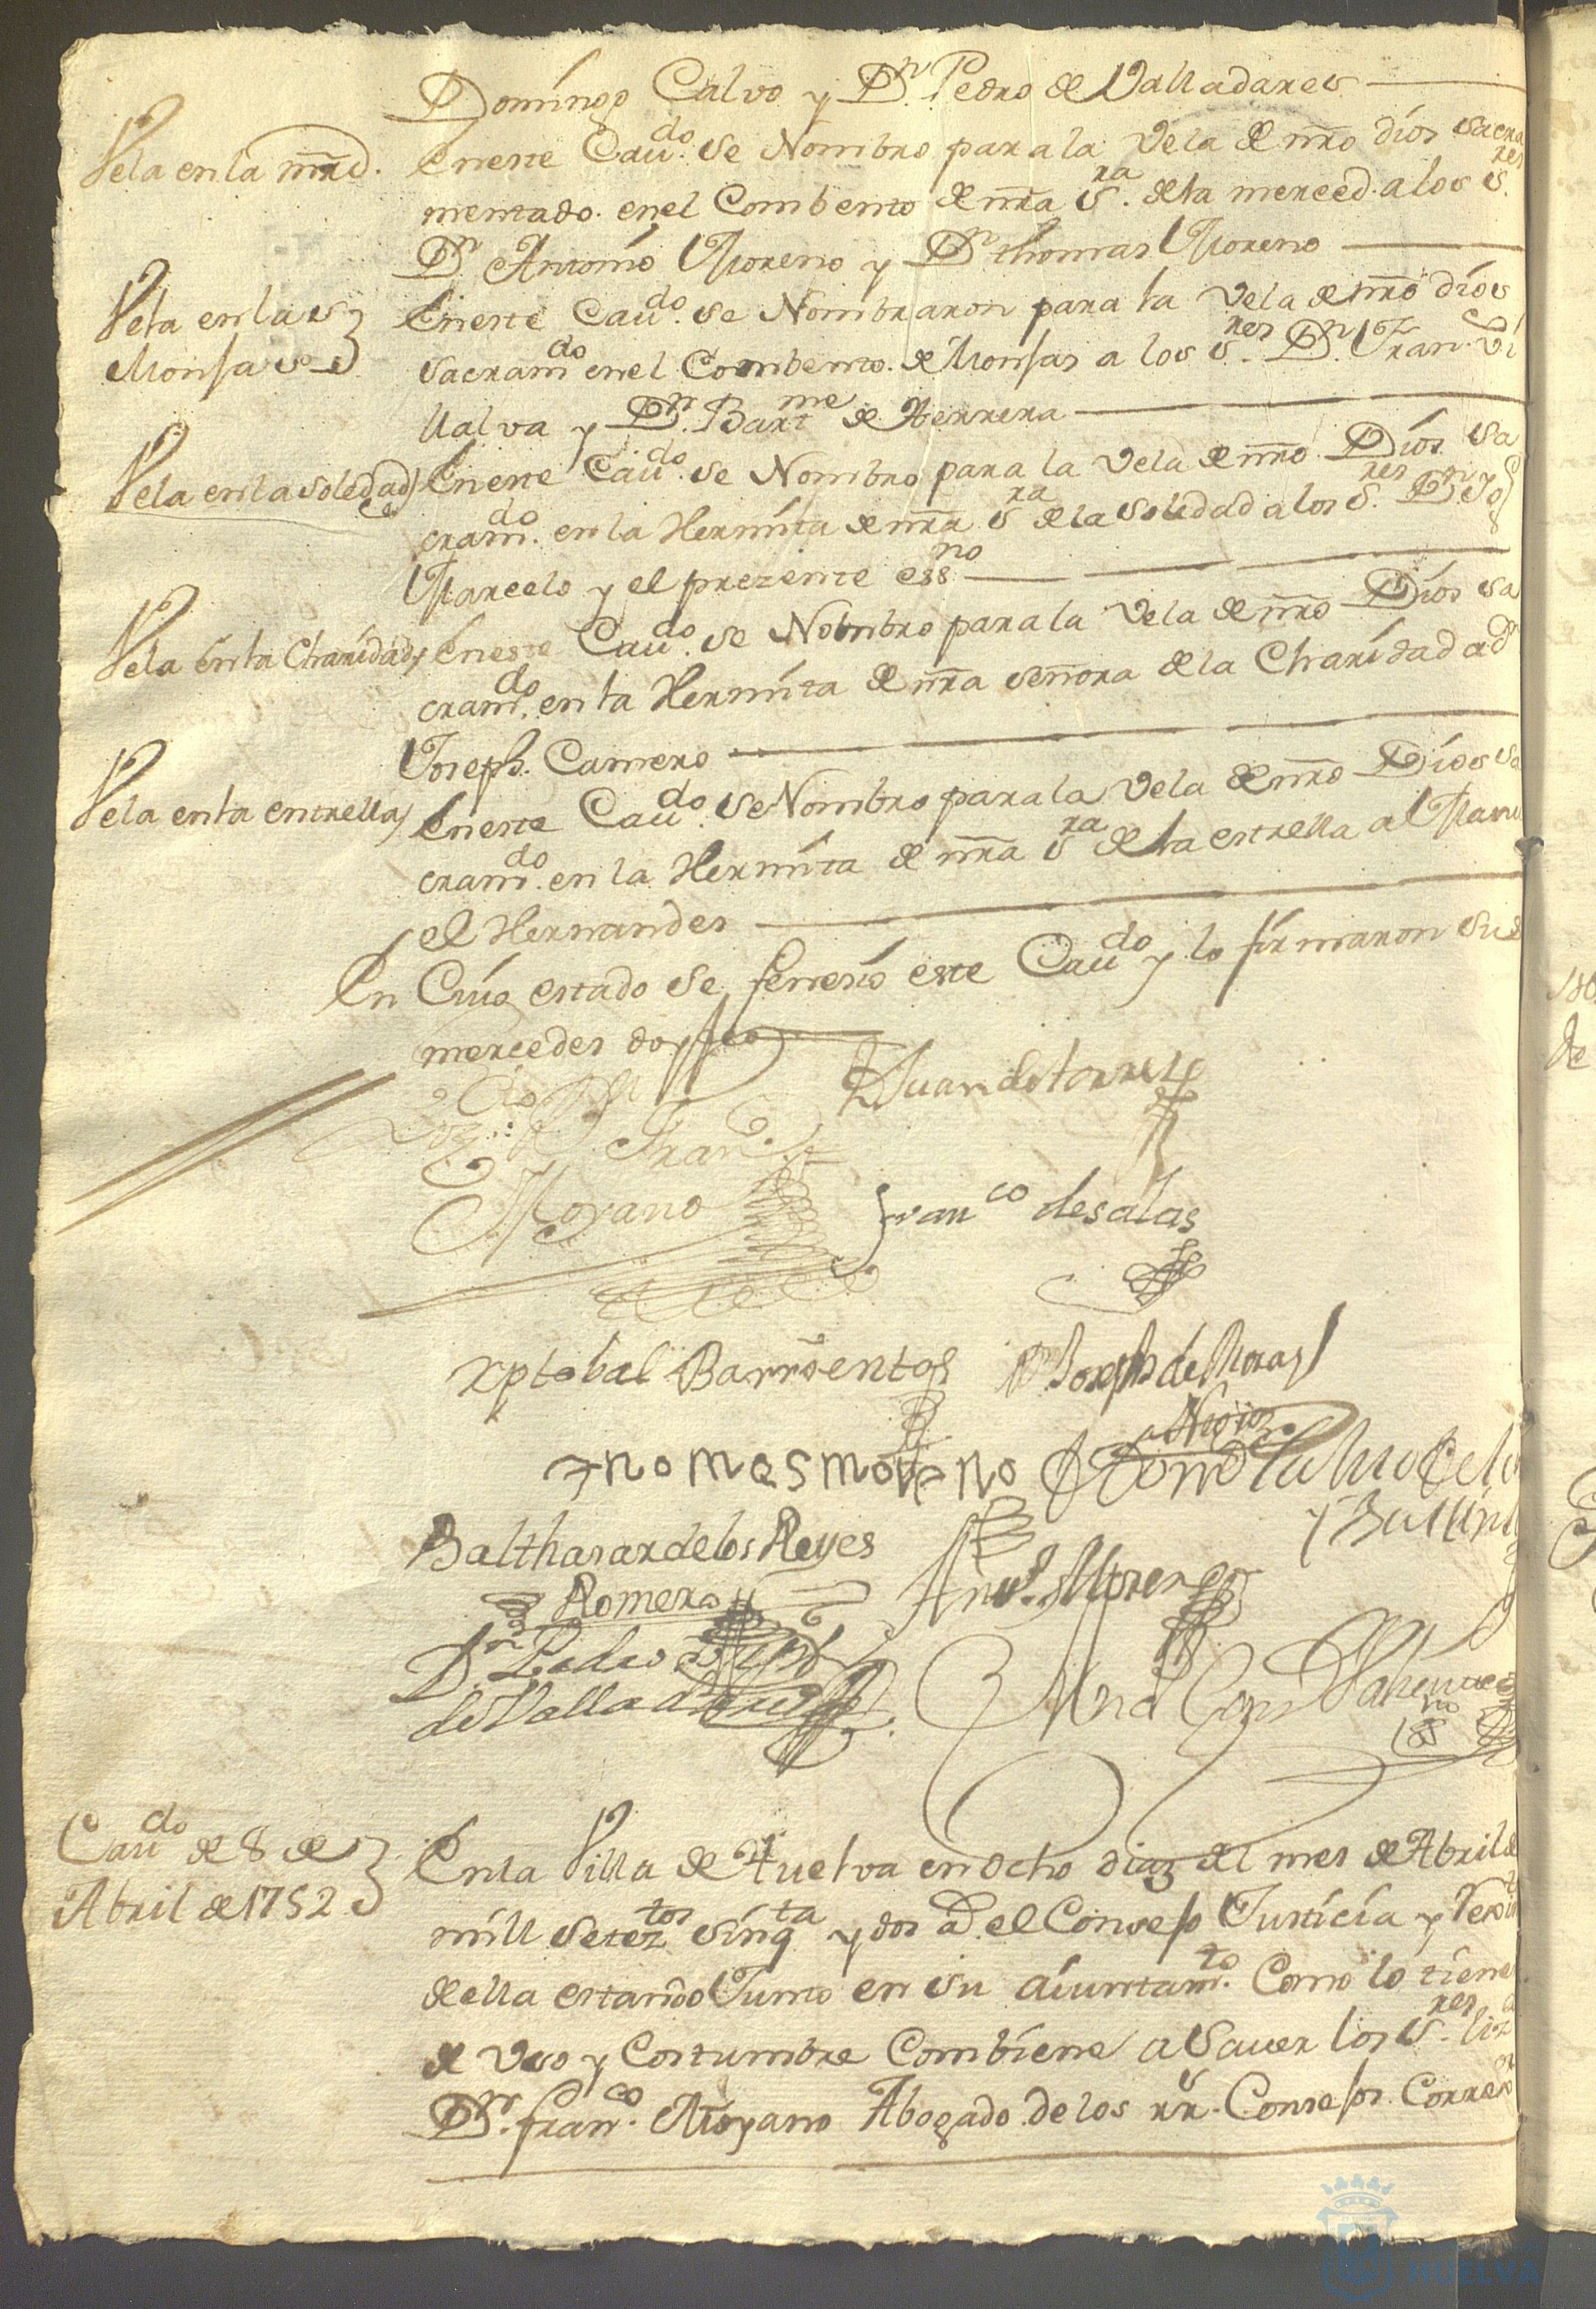 Domingo Calvo y Dn. Pedro de Valladares
Vela en la mrd.
En este Cavdo. se Nombro para la Vela de nro dios sacra
mentado. en el Combento de nra sra. de la merced. a los sres.
Dn Antonio Moreno y Dn thomas Moreno
Vela en las
Monjas
En este Cavdo. se Nombraron para la Vela de nro dios
sacramdo en el Combento. de Monjas a los sres. Dn. Fran. Vi
llalva y Dn. Bartme de Herrera
Vela en la soledad
En este Cavdo. se Nombro para la Vela de nro Dios sa
cramdo. en la Hermita de nra sra de la soledad a los sres. Dn. Jos
Marcelo y el prezente essno
Vela en la Charidad
En este Cavdo. se Nombro para la Vela de nro Dios sa
cramdo. en la Hermita de nra señora de la Charidad a dn
Joseph. Camero
Vela en la entrella
En este Cavdo. se Nombro para la Vela de nro Dios sa
cramdo. en la Hermita de nra sra de la estrella a Manu
el Hernandes
En Cuio estado se fenesio este Cavdo y lo firmaron sus
mercedes doy fee
Juan de torres
Fran.
Moyano
franco de salas
xptobal Barrientos
Joseph de Moras
thomas moreno
Balthasar de los Reyes
Romero
Anto. Moreno
Dn Pedro
de Valladares
Cavdo de 8 de
Abril de 1752
En la Villa de Huelva en ocho dias del mes de Abril de
mill seteztos sinqta y dos as. el Consejo Justicia y Rexim
de ella estando Junto en su aiuntamto. Como lo tiene
de Uso y Costumbre Combiene a Saver los sres. liz
Dn. franco. Moyano Abogado de los rrs. Consejos. Correxor
HUELVA